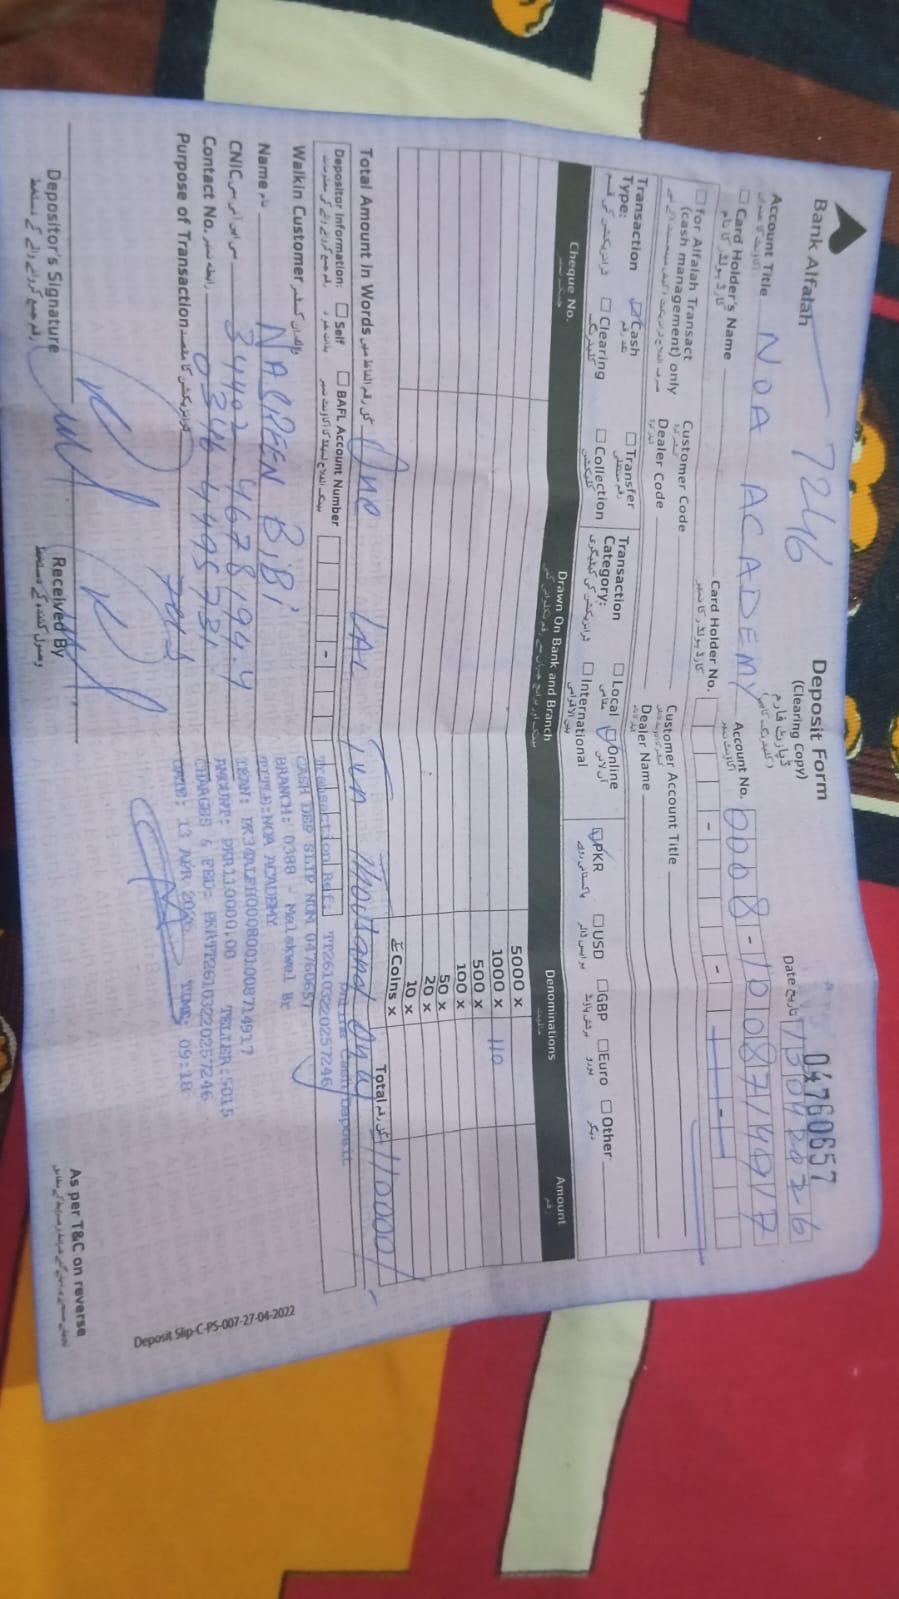 Bank Alfalah
7246
Deposit Form
(Clearing Copy)
ڈپازٹ فارم
04760657
Date تاریخ 13042026
Account Title NOA ACADEMY
Account No. 0008-1008714917
Card Holder's Name
Card Holder No.
for Alfalah Transact
(cash management) only
Customer Code
Customer Account Title
Dealer Code
Dealer Name
Transaction Type:
Cash
Transfer
Clearing
Collection
Transaction Category:
Local
Online
International
PKR
USD
GBP
Euro
Other
Cheque No.
Drawn On Bank and Branch
Denominations
Amount
5000 x
1000 x 110
500 x
100 x
50 x
20 x
10 x
Coins x
Total Amount In Words One Lac Ten Thousand only
Total 110000/-
Depositor Information:
Self
BAFL Account Number
Walkin Customer
Name نام NAUREEN BiBi
CNIC 34402 4678194-4
Contact No. 0346 4495731
Purpose of Transaction
Online Cash Deposit
Transaction Ref: TT26103220257246
CASH DEP SLIP NUM 04760657
BRANCH: 0388 - Malakwal Br
TITLE:NOA ACADEMY
IBAN: PK34ALFH0008001008714917
AMOUNT: PKR110000.00 TELLER:5015
CHARGES & FED: PKR
TT26103220257246
DATE: 13 APR 2026 TIME: 09:18
Depositor's Signature
Received By
As per T&C on reverse
Deposit Slip-C-PS-007-27-04-2022